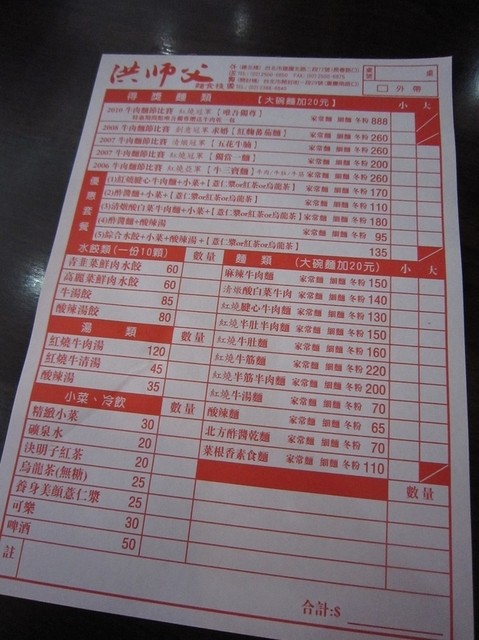 洪師父
麵食棧
桌號
桌
外帶
得獎麵類 【大碗麵加20元】 小 大
2010 牛肉麵節比賽 紅燒冠軍【唯吾獨尊】 家常麵 細麵 冬粉 888
2008 牛肉麵節比賽 創意冠軍 家常麵 細麵 冬粉 260
2007 牛肉麵節比賽 清燉冠軍【五花牛腩】 家常麵 細麵 冬粉 260
2007 牛肉麵節比賽 紅燒冠軍【獨當一麵】 家常麵 細麵 冬粉 200
2006 牛肉麵節比賽 紅燒亞軍【牛三寶麵】 家常麵 細麵 冬粉 260
優惠套餐
(1)紅燒腱心牛肉麵+小菜+【薏仁漿or紅茶or烏龍茶】 170
(2)酢醬麵+小菜+【薏仁漿or紅茶or烏龍茶】 110
(3)清燉酸白菜牛肉麵+小菜+【薏仁漿or紅茶or烏龍茶】 180
(4)酢醬麵+酸辣湯 95
(5)綜合水餃+小菜+酸辣湯+【薏仁漿or紅茶or烏龍茶】 135
水餃類(一份10顆) 數量
青韮菜鮮肉水餃 60
高麗菜鮮肉水餃 60
牛湯餃 85
酸辣湯餃 80
湯類 數量
紅燒牛肉湯 120
紅燒牛清湯 45
酸辣湯 35
小菜、冷飲 數量
精緻小菜 30
礦泉水 20
決明子紅茶 20
烏龍茶(無糖) 25
養身美顏薏仁漿 25
可樂 30
啤酒 50
註
麵類 (大碗麵加20元) 小 大
麻辣牛肉麵 家常麵 細麵 冬粉 150
清燉酸白菜牛肉 家常麵 細麵 冬粉 140
紅燒腱心牛肉麵 家常麵 細麵 冬粉 130
紅燒半肚半肉麵 家常麵 細麵 冬粉 150
紅燒牛肚麵 家常麵 細麵 冬粉 160
紅燒牛筋麵 家常麵 細麵 冬粉 220
紅燒半筋半肉麵 家常麵 細麵 冬粉 200
紅燒牛湯麵 家常麵 細麵 冬粉 70
酸辣麵 家常麵 細麵 冬粉 65
北方酢醬乾麵 家常麵 細麵 冬粉 70
菜根香素食麵 家常麵 細麵 冬粉 110
數量
合計:$